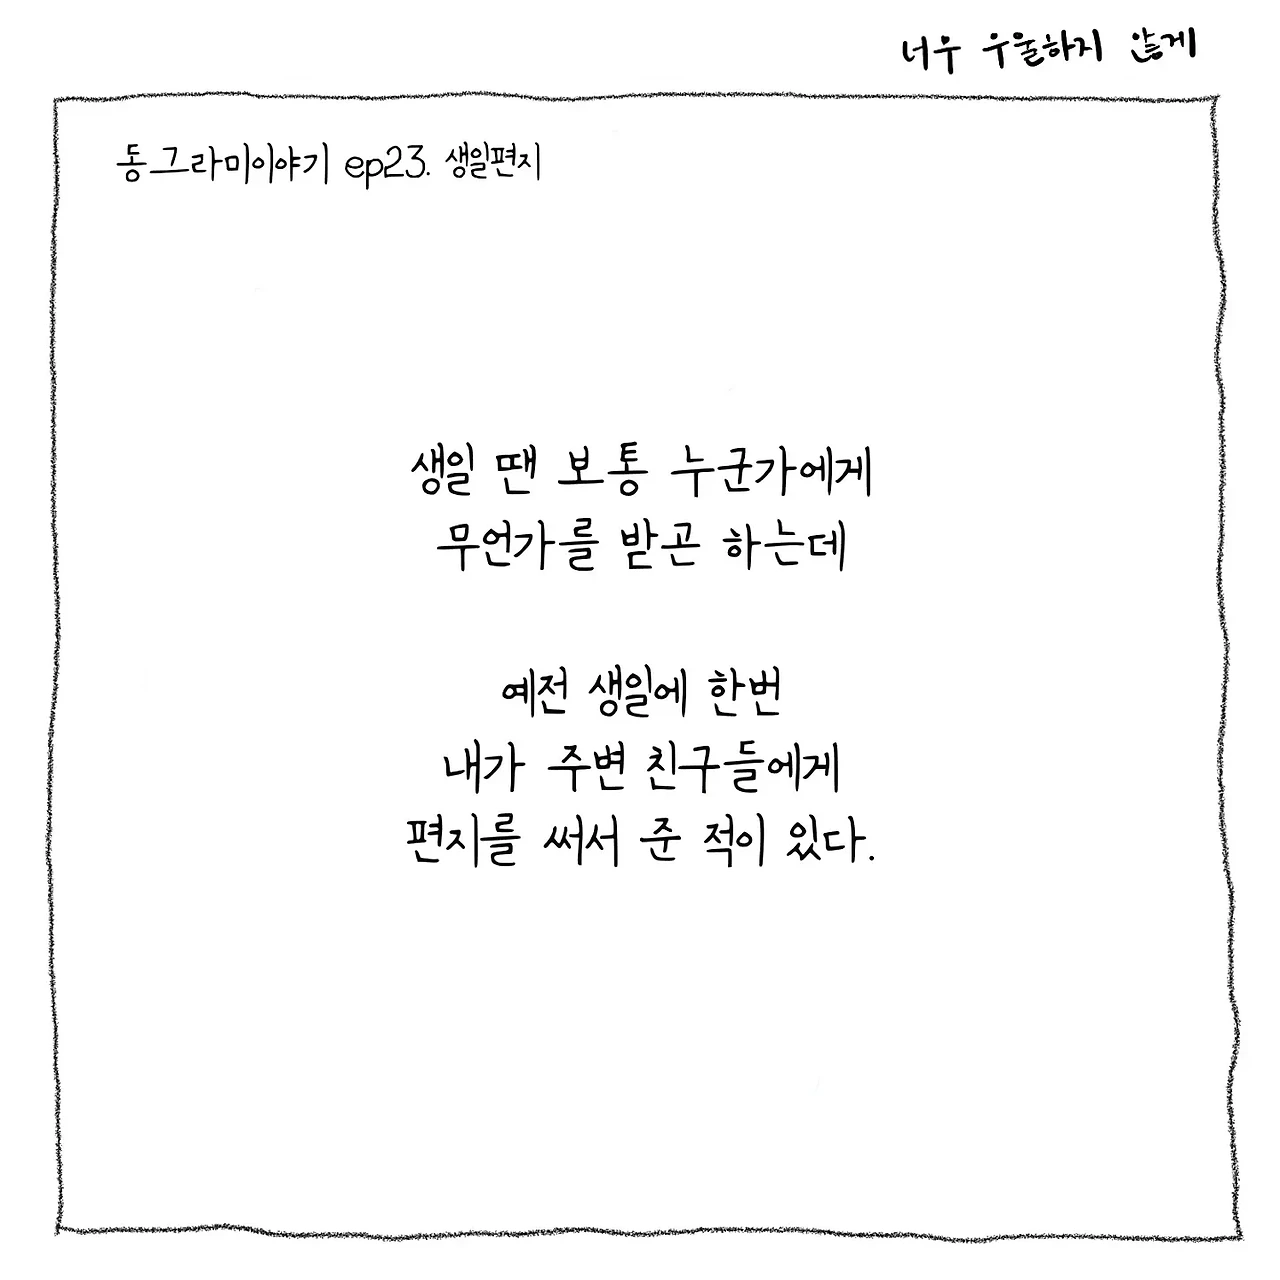 너우 우울하지 않게
동그라미이야기 ep23. 생일편지
생일 땐 보통 누군가에게
무언가를 받곤 하는데
예전 생일에 한번
내가 주변 친구들에게
편지를 써서 준 적이 있다.